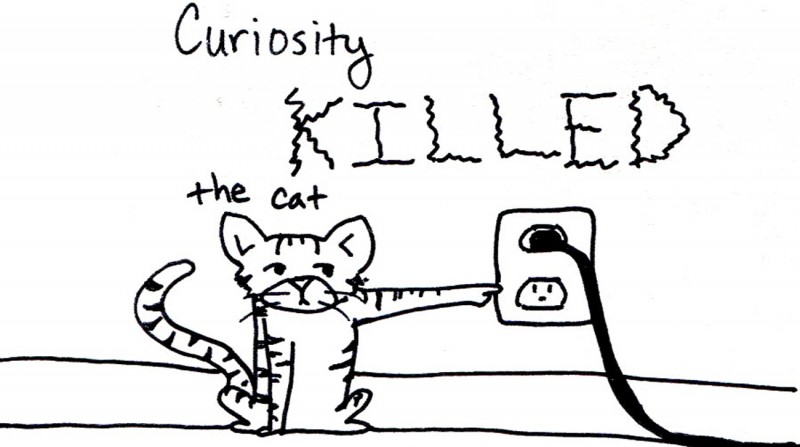 Curiosity
KILLED
the cat